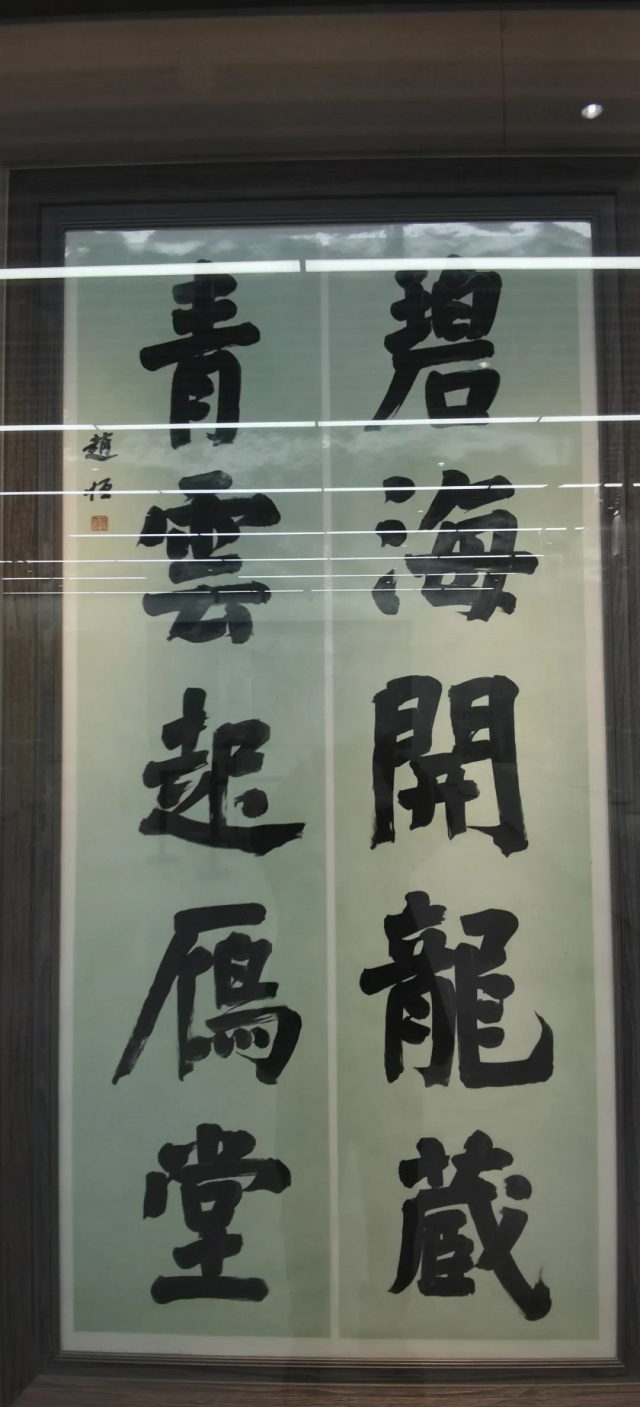 碧海開龍藏
青雲起鴈堂
趙恒